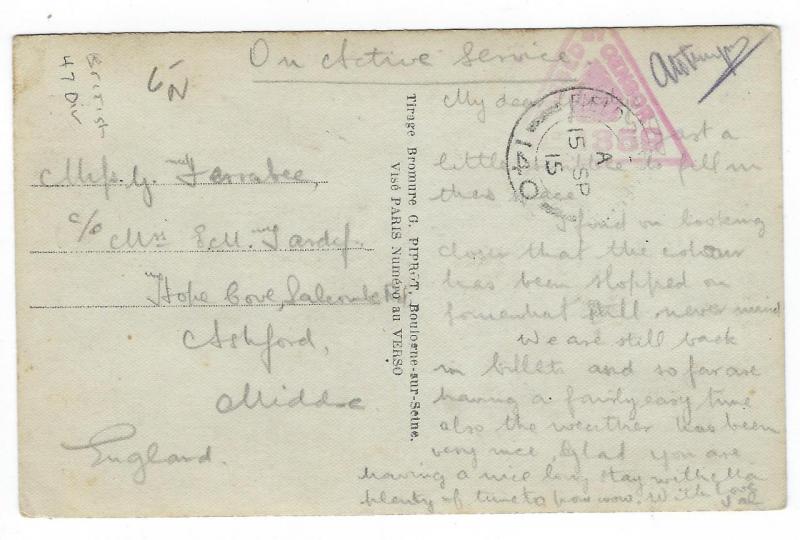 On Active Service.
British
47 Div
Miss G.
c/o Mrs E.M. Tardif,
Hope Cove, Salcombe Rd
Ashford,
Middx
England.
Tirage Bromure G. PIPROT, Boulogne-sur-Seine.
Visé PARIS Numéro au VERSO
CENSOR
FIELD
A
15 SP
15
140
My dear
just a
little to fill in
this space.
I find on looking
closer that the colour
has been slopped on
somewhat still never mind
We are still back
in billets and so far are
having a fairly easy time
also the weather has been
very nice. Glad you are
having a nice long stay with
plenty of time to pow wow. With love